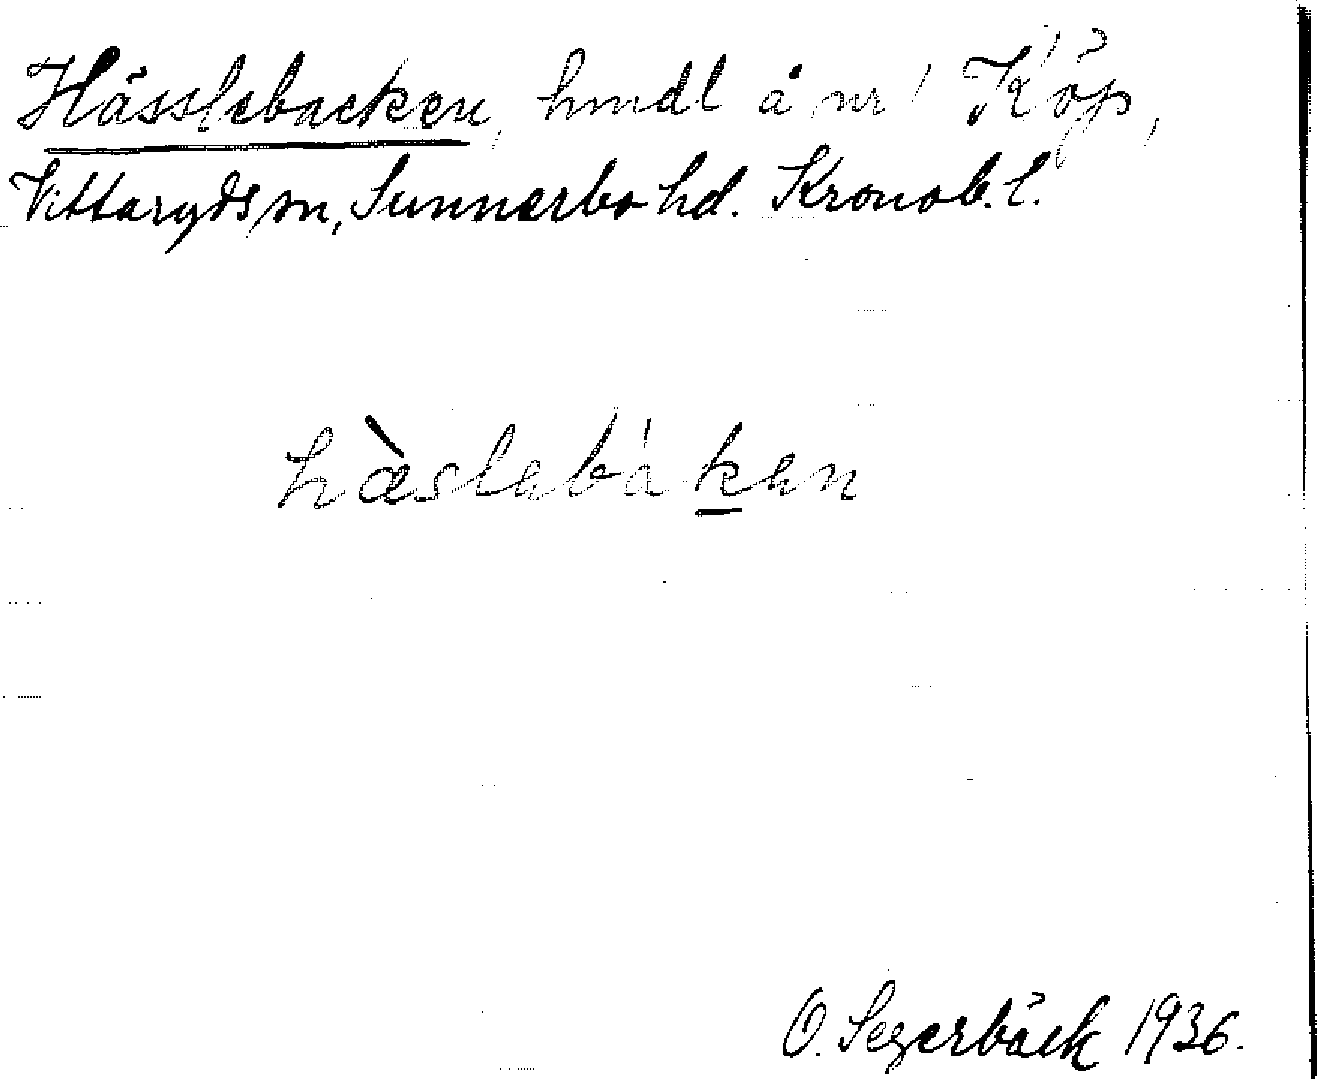 Hässlebacken, hmdl å nr 1 Köp,
Vittaryds sn, Sunnerbo hd. Kronob. l.
hæ̀slebáken
O. Segerbäck 1936.